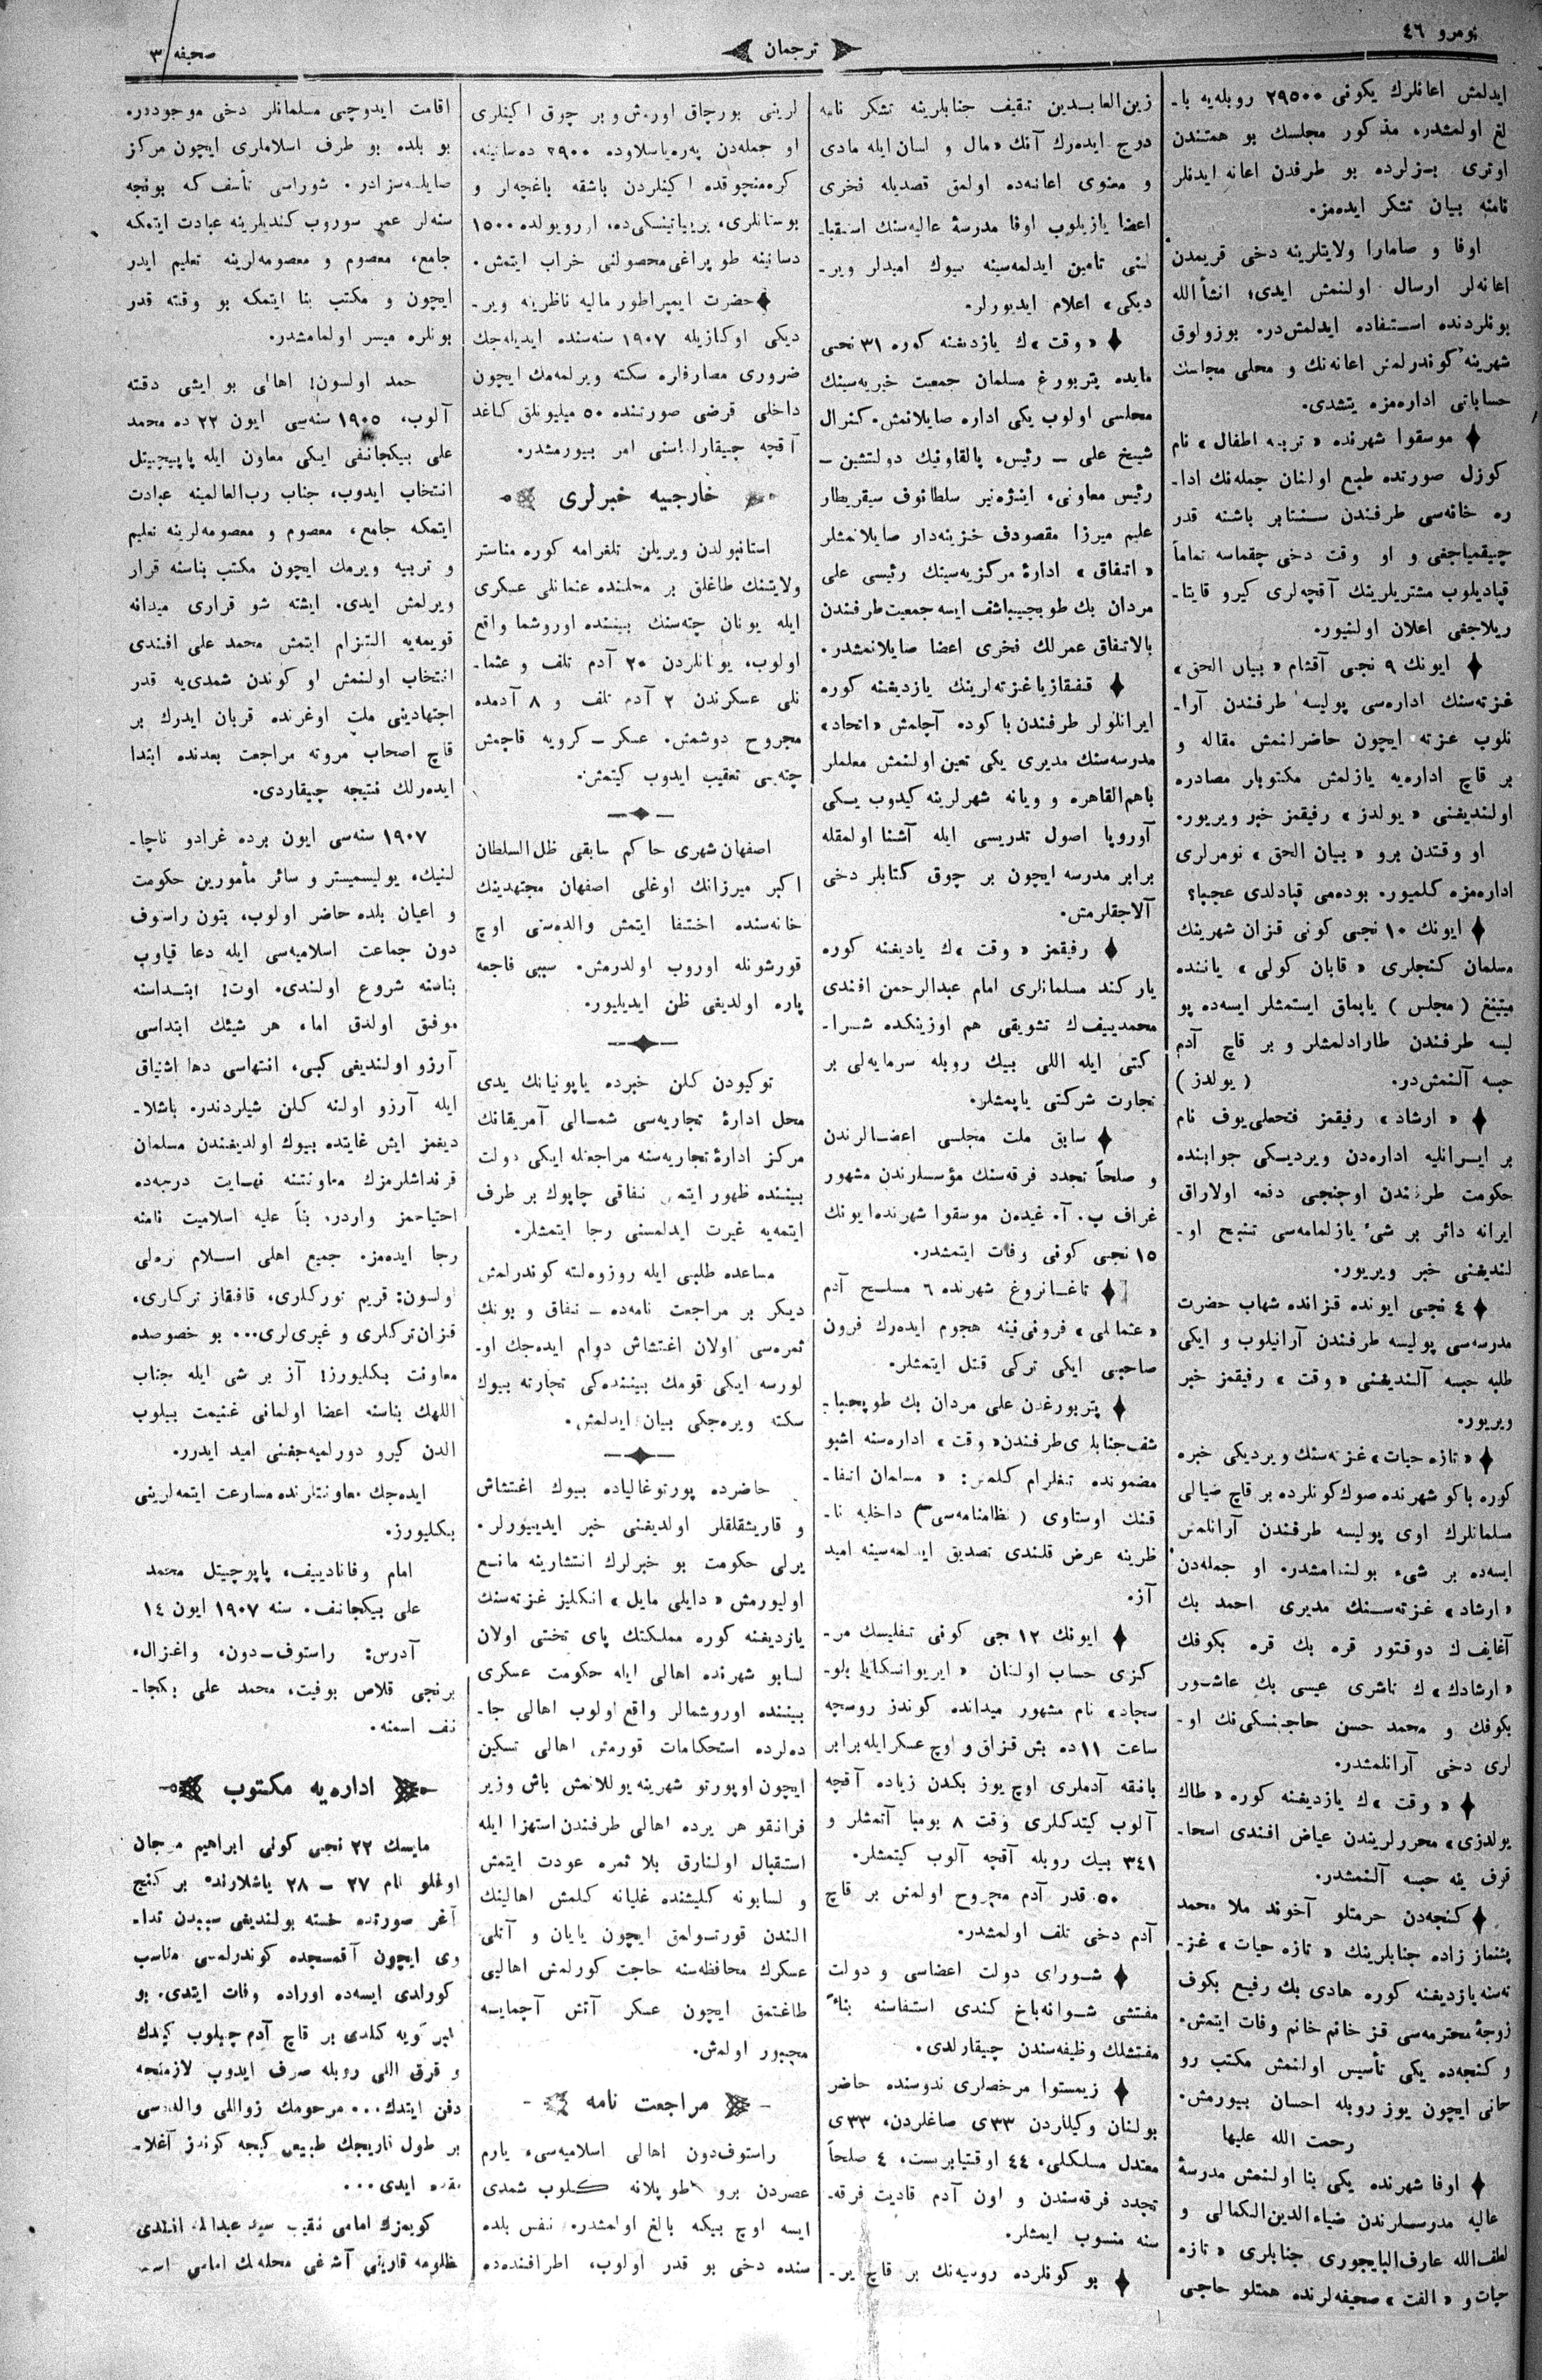 نومرو ٤٦
ترجمان
صحیفه ٣
ایدلمش اعانلرك یكونی ٢٩٥٠٠ روبله‌یه با-
لغ اولمشدر. مذكور مجلسك بو همتندن
اوتری بزلرده بو طرفدن اعانه ایدنلر
نامنه بیان تشكر ایده‌مز.
اوفا و صامارا ولایتلرینه دخی قریمدن
اعانه‌لر ارسال اولنمش ایدی؛ انشأالله
بونلردنده استفاده ایدلمش‌در. بوزولوق
شهرینه كوندرلمش اعانه‌نك و محلی مجلسك
حساباتی اداره‌مزه یتشدی.
موسقوا شهرنده « تربیه اطفال » نام
كوزل صورتده طبع اولنان جمله‌نك ادا-
ره خانه‌سی طرفندن سنتابر باشنه قدر
چیقمیاجغی و او وقت دخی چقماسه تماماً
قپادیلوب مشتریلرینك آقچه‌لری كیرو قایتا-
ریلاجغی اعلان اولنیور.
ایونك ٩ نجی آقشام « بیان الحق »
غزته‌سنك اداره‌سی پولیسه طرفندن آرا-
نلوب غزته ایچون حاضرلنمش مقاله و
بر قاچ اداره‌یه یازلمش مكتوبلر مصادره
اولندیغنی « یولدز » رفیقمز خبر ویریور.
او وقتدن برو « بیان الحق » نومرلری
اداره‌مزه كلمیور. بوده‌می قپادلدی عجبا؟
ایونك ١٠ نجی كونی قزان شهرینك
مسلمان كنجلری « قابان كولی » یاننده
میتینغ ( مجلس ) یاپماق ایستمشلر ایسه‌ده پو
لیسه طرفندن طارادلمشلر و بر قاچ آدم
حبسه آلنمش‌در. ( یولدز )
« ارشاد » رفیقمز فتحعلی‌یوف نام
بر ایرانلیه اداره‌دن ویردیكی جوابنده
حكومت طرفندن اوچنجی دفعه اولاراق
ایرانه دائر بر شئ یازلمامه‌سی تنبیح او-
لندیغنی خبر ویریور.
٤ نجی ایونده قزانده شهاب حضرت
مدرسه‌سی پولیسه طرفندن آرانیلوب و ایكی
طلبه حبسه آلندیغنی « وقت » رفیقمز خبر
ویریور.
« تازه حیات » غزته‌سنك ویردیكی خبره
كوره باكو شهرنده صوك كونلرده بر قاچ ضیالی
مسلمانلرك اوی پولیسه طرفندن آرانلمش
ایسه‌ده بر شیء بولنمامشدر. او جمله‌دن
« ارشاد » غزته‌سنك مدیری احمد بك
آغایف ك دوقتور قره بك قره بكوفك
« ارشادك » ك ناشری عیسی بك عاشور
بكوفك و محمد حسن حاجنسكی‌نك او-
لری دخی آرانلمشدر.
« وقت » ك یازدیغنه كوره « طاك
یولدزی » محررلریندن عیاض افندی اسحا-
قوف ینه حبسه آلنمشدر.
كنجه‌دن حرمتلو آخوند ملا محمد
پشنماز زاده جنابلرینك « تازه حیات » غز-
ته‌سنه یازدیغنه كوره هادی بك رفیع بكوف
زوجهٔ محترمه‌سی قز خانم خانم وفات ایتمش.
و كنجه‌ده یكی تأسیس اولنمش مكتب رو
حانی ایچون یوز روبله احسان بیورمش.
رحمت الله علیها
اوفا شهرنده یكی بنا اولنمش مدرسهٔ
عالیه مدرسلرندن ضیاءالدین الكمالی و
لطف‌الله عارف البایجوری جنابلری « تازه
حیات و « الفت » صحیفه‌لرنده همتلو حاجی
زین‌العابدین تقیف جنابلرینه تشكر نامه
درج ایده‌رك آنك « مال و لسان ایله مادی
و معنوی اعانه‌ده اولمق قصدیله فخری
اعضا یازیلوب اوفا مدرسهٔ عالیه‌سنك استقبا-
لنی تامین ایدلمه‌سینه بیوك امیدلر ویر-
دیكی » اعلام ایدیورلر.
« وقت » ك یازدیغنه كوره ٣١ نجی
مایده پتربورغ مسلمان جمعیت خیریه‌سینك
مجلسی اولوب یكی اداره صایلانمش. كنرال
شیخ علی — رئیس، پالقاونیك دولتشین —
رئیس معاونی، اینژه‌نیر سلطانوف سیقریطار
علیم میرزا مقصودف خزینه‌دار صایلانمشلر
« اتفاق » ادارهٔ مركزیه‌سینك رئیسی علی
مردان بك طوپجیباشف ایسه جمعیت طرفندن
بالاتفاق عمرلك فخری اعضا صایلانمشدر.
قفقازیا غزته‌لرینك یازدیغنه كوره
ایرانلولر طرفندن باكوده آچلمش « اتحاد »
مدرسه‌سنك مدیری یكی تعین اولنمش معلملر
باهم القاهره و ویانه شهرلرینه كیدوب یكی
آوروپا اصول تدریسی ایله آشنا اولمقله
برابر مدرسه ایچون بر چوق كتابلر دخی
آلاجقلرمش.
رفیقمز « وقت » ك یادیغنه كوره
یاركند مسلمانلری امام عبدالرحمن افندی
محمدییف ك تشویقی هم اوزینكده شرا-
كتی ایله اللی بیك روبله سرمایه‌لی بر
تجارت شركتی یاپمشلر.
سابق ملت مجلسی اعضالرندن
و صلحاً تجدد فرقه‌سنك مؤسسلرندن مشهور
غراف پ. آ. غیده‌ن موسقوا شهرنده ایونك
١٥ نجی كونی وفات ایتمشدر.
تاغانروغ شهرنده ٦ مسلح آدم
« عثمانلی » فرونی‌نینه هجوم ایده‌رك فرون
صاحبی ایكی تركی قتل ایتمشلر.
پتربورغدن علی مردان بك طوپجیبا-
شف جنابلری طرفندن « وقت » اداره‌سنه اشبو
مضمونده تلغرام كلمش: « مسلمان اتفا-
قنك اوستاوی ( نظامنامه‌سی ) داخلیه نا-
ظرینه عرض قلندی تصدیق ایدلمه‌سینه امید
آز.
ایونك ١٢ جی كونی تفلیسك مر-
كزی حساب اولنان « ایریوانسكایا پلو-
سجاد » نام مشهور میدانده كوندز روسچه
ساعت ١١ ده بش قزاق و اوچ عسكر ایله برابر
بانقه آدملری اوچ یوز بكدن زیاده آقچه
آلوب كیتدكلری وقت ٨ بومبا آتمشلر و
٣٤١ بیك روبله آقچه آلوب كیتمشلر.
٥٠ قدر آدم مجروح اولمش بر قاچ
آدم دخی تلف اولمشدر.
شورای دولت اعضاسی و دولت
مفتشی شوانه‌باخ كندی استفاسنه بناءً
مفتشلك وظیفه‌سندن چیقارلدی.
زیمستوا مرخصلری ندوسنده حاضر
بولنان وكیللردن ٣٣ی صاغلردن، ٣٣ی
معتدل مسلكلی، ٤٤ اوقتیابریست، ٤ صلحاً
تجدد فرقه‌سندن و اون آدم قادیت فرقه-
سنه منسوب ایمشلر.
بو كونلرده روسیه‌نك بر قاچ یر-
لرینی بورچاق اورمش و بر چوق اكینلری
او جمله‌دن په‌ره‌یاسلاوده ٢٩٠٠ ده‌سانینه،
كره‌منچوقده اكینلردن باشقه باغچه‌لر و
بوستانلری، بریانسكی‌ده، اروبولده ١٥٠٠
دسانینه طوپراغی محصولنی خراب ایتمش.
حضرت ایمپراطور مالیه ناظرینه ویر-
دیكی اوكازیله ١٩٠٧ سنه‌سنده ایدیله‌جك
ضروری مصارفلره سكته ویرلمه‌مك ایچون
داخلی قرضی صورتنده ٥٠ میلیونلق كاغد
آقچه چیقارلماسنی امر بیورمشدر.
خارجییه خبرلری
استانبولدن ویریلن تلغرامه كوره مناستر
ولایتنك طاغلق بر محلنده عثمانلی عسكری
ایله یونان چته‌سنك بیننده اوروشما واقع
اولوب، یونانلردن ٢٠ آدم تلف و عثما-
نلی عسكرندن ٢ آدم تلف و ٨ آدمده
مجروح دوشمش. عسكر — كرویه قاچمش
چته‌یی تعقیب ایدوب كیتمش.
اصفهان شهری حاكم سابقی ظل السلطان
اكبر میرزانك اوغلی اصفهان مجتهدینك
خانه‌سنده اختفا ایتمش والده‌سنی اوچ
قورشونله اوروب اولدرمش. سببی فاجعه
پاره اولدیغی ظن ایدیلیور.
توكیودن كلن خبرده یاپونیانك یدی
محل ادارهٔ تجاریه‌سی شمالی آمریقانك
مركز ادارهٔ تجاریه‌سنه مراجعتله ایكی دولت
بیننده ظهور ایتمش نفاقی چاپوك بر طرف
ایتمه‌یه غیرت ایدلمسنی رجا ایتمشلر.
مساعده طلبی ایله روزوه‌لته كوندرلمش
دیكر بر مراجعت نامه‌ده — نفاق و بونك
ثمره‌سی اولان اغتشاش دوام ایده‌جك او-
لورسه ایكی قومك بیننده‌كی تجارته بیوك
سكته ویره‌جكی بیان ایدلمش.
حاضرده پورتوغالیاده بیوك اغتشاش
و قاریشقلقلر اولدیغنی خبر ایدییورلر.
یرلی حكومت بو خبرلرك انتشارینه مانع
اولیورمش « دایلی مایل » انكلیز غزته‌سنك
یازدیغنه كوره مملكتك پای تختی اولان
لسابو شهرنده اهالی ایله حكومت عسكری
بیننده اوروشمالر واقع اولوب اهالی جا-
ده‌لرده استحكامات قورمش اهالی تسكین
ایچون اوپورتو شهرینه یوللانمش باش وزیر
فرانقو هر یرده اهالی طرفندن استهزا ایله
استقبال اولنارق بلا ثمره عودت ایتمش
و لسابونه كلیشنده غلیانه كلمش اهالینك
الندن قورتولمق ایچون یایان و آتلی
عسكرك محافظه‌سنه حاجت كورلمش اهالیی
طاغتمق ایچون عسكر آتش آچمایسه
مجبور اولمش.
مراجعت نامه
راستوف‌دون اهالی اسلامیه‌سیء یارم
عصردن برو طوپلانه كلوب شمدی
ایسه اوچ بیكه بالغ اولمشدر. نفس بلده
سنده دخی بو قدر اولوب، اطرافنده‌ده
اقامت ایدوچی مسلمانلر دخی موجوددر.
بو بلده بو طرف اسلاملری ایچون مركز
صایلسه‌سزادر. شوراسی تأسف كه بونجه
سنه‌لر عمر سوروب كندیلرینه عبادت ایتمكه
جامع، معصوم و معصومه‌لرینه تعلیم ایدر
ایچون و مكتب بنا ایتمكه بو وقته قدر
بونلره میسر اولمامشدر.
حمد اولسون! اهالی بو ایشی دقته
آلوب، ١٩٠٥ سنه‌سی ایون ٢٢ ده محمد
علی بیكجانفی ایكی معاون ایله پاپیچیتل
انتخاب ایدوب، جناب رب‌العالمینه عبادت
ایتمكه جامع، معصوم و معصومه‌لرینه تعلیم
و تربیه ویرمك ایچون مكتب بناسنه قرار
ویرلمش ایدی. ایشته شو قراری میدانه
قویمه‌یه التزام ایتمش محمد علی افندی
انتخاب اولنمش او كوندن شمدی‌یه قدر
اجتهادینی ملت اوغرنده قربان ایدرك بر
قاچ اصحاب مروته مراجعت بعدنده ابتدا
ایده‌رلك نتیجه چیقاردی.
١٩٠٧ سنه‌سی ایون برده غرادو ناچا-
لنیك، پولیسمیستر و سائر مأمورین حكومت
و اعیان بلده حاضر اولوب، بتون راستوف
دون جماعت اسلامیه‌سی ایله دعا قیلوب
بناسنه شروع اولندی. اوت! ابتداسنه
موفق اولدق اما، هر شیئك ابتداسی
آرزو اولندیغی كبی، انتهاسی دها اشتیاق
ایله آرزو اولنه كلن شیلردندر. باشلا-
دیغمز ایش غایتده بیوك اولدیغندن مسلمان
قرنداشلرمزك معاونتنه نهایت درجه‌ده
احتیاجمز واردر. بناً علیه اسلامیت نامنه
رجا ایده‌مز. جمیع اهلی اسلام نره‌لی
اولسون: قریم توركلری، قافقاز تركلری،
قزان تركلری و غیری‌لری... بو خصوصده
معاونت بكلیورز! آز بر شی ایله جناب
اللهك بناسنه اعضا اولمانی غنیمت بیلوب
الدن كیرو دورلمیه‌جغنی امید ایدرر.
ایده‌جك معاونتلرنده مسارعت ایتمه‌لرینی
بكلیورز.
امام وفانادییف، پاپرچیتل محمد
علی بیكجانف. سنه ١٩٠٧ ایون ١٤
آدرس: راستوف—دون، واغزال،
برنجی قلاص بوفیت، محمد علی بیكجا-
نف اسمنه.
اداره‌یه مكتوب
مایسك ٢٢ نجی كونی ابراهیم مرجان
اوغلو نام ٢٧ — ٢٨ یاشلارنده بر كنج
آغر صورتده خسته بولندیغی سببدن تدا-
وی ایچون آقمسجده كوندرلمسی مناسب
كورلدی ایسه‌ده اوراده وفات ایتدی. بو
كویه كلدی بر قاچ آدم چیلوب كیدك
و قرق اللی روبله صرف ایدوب لازمنجه
دفن ایتدك... مرحومك زواللی والده‌سی
بر طول ناریجك طبیعی كیجه كوندز آغلا-
ایدی...
كویمزك امامی نقیب سید عبدالله افندی
مظلومه قارینی آشغی محله‌نك امامی